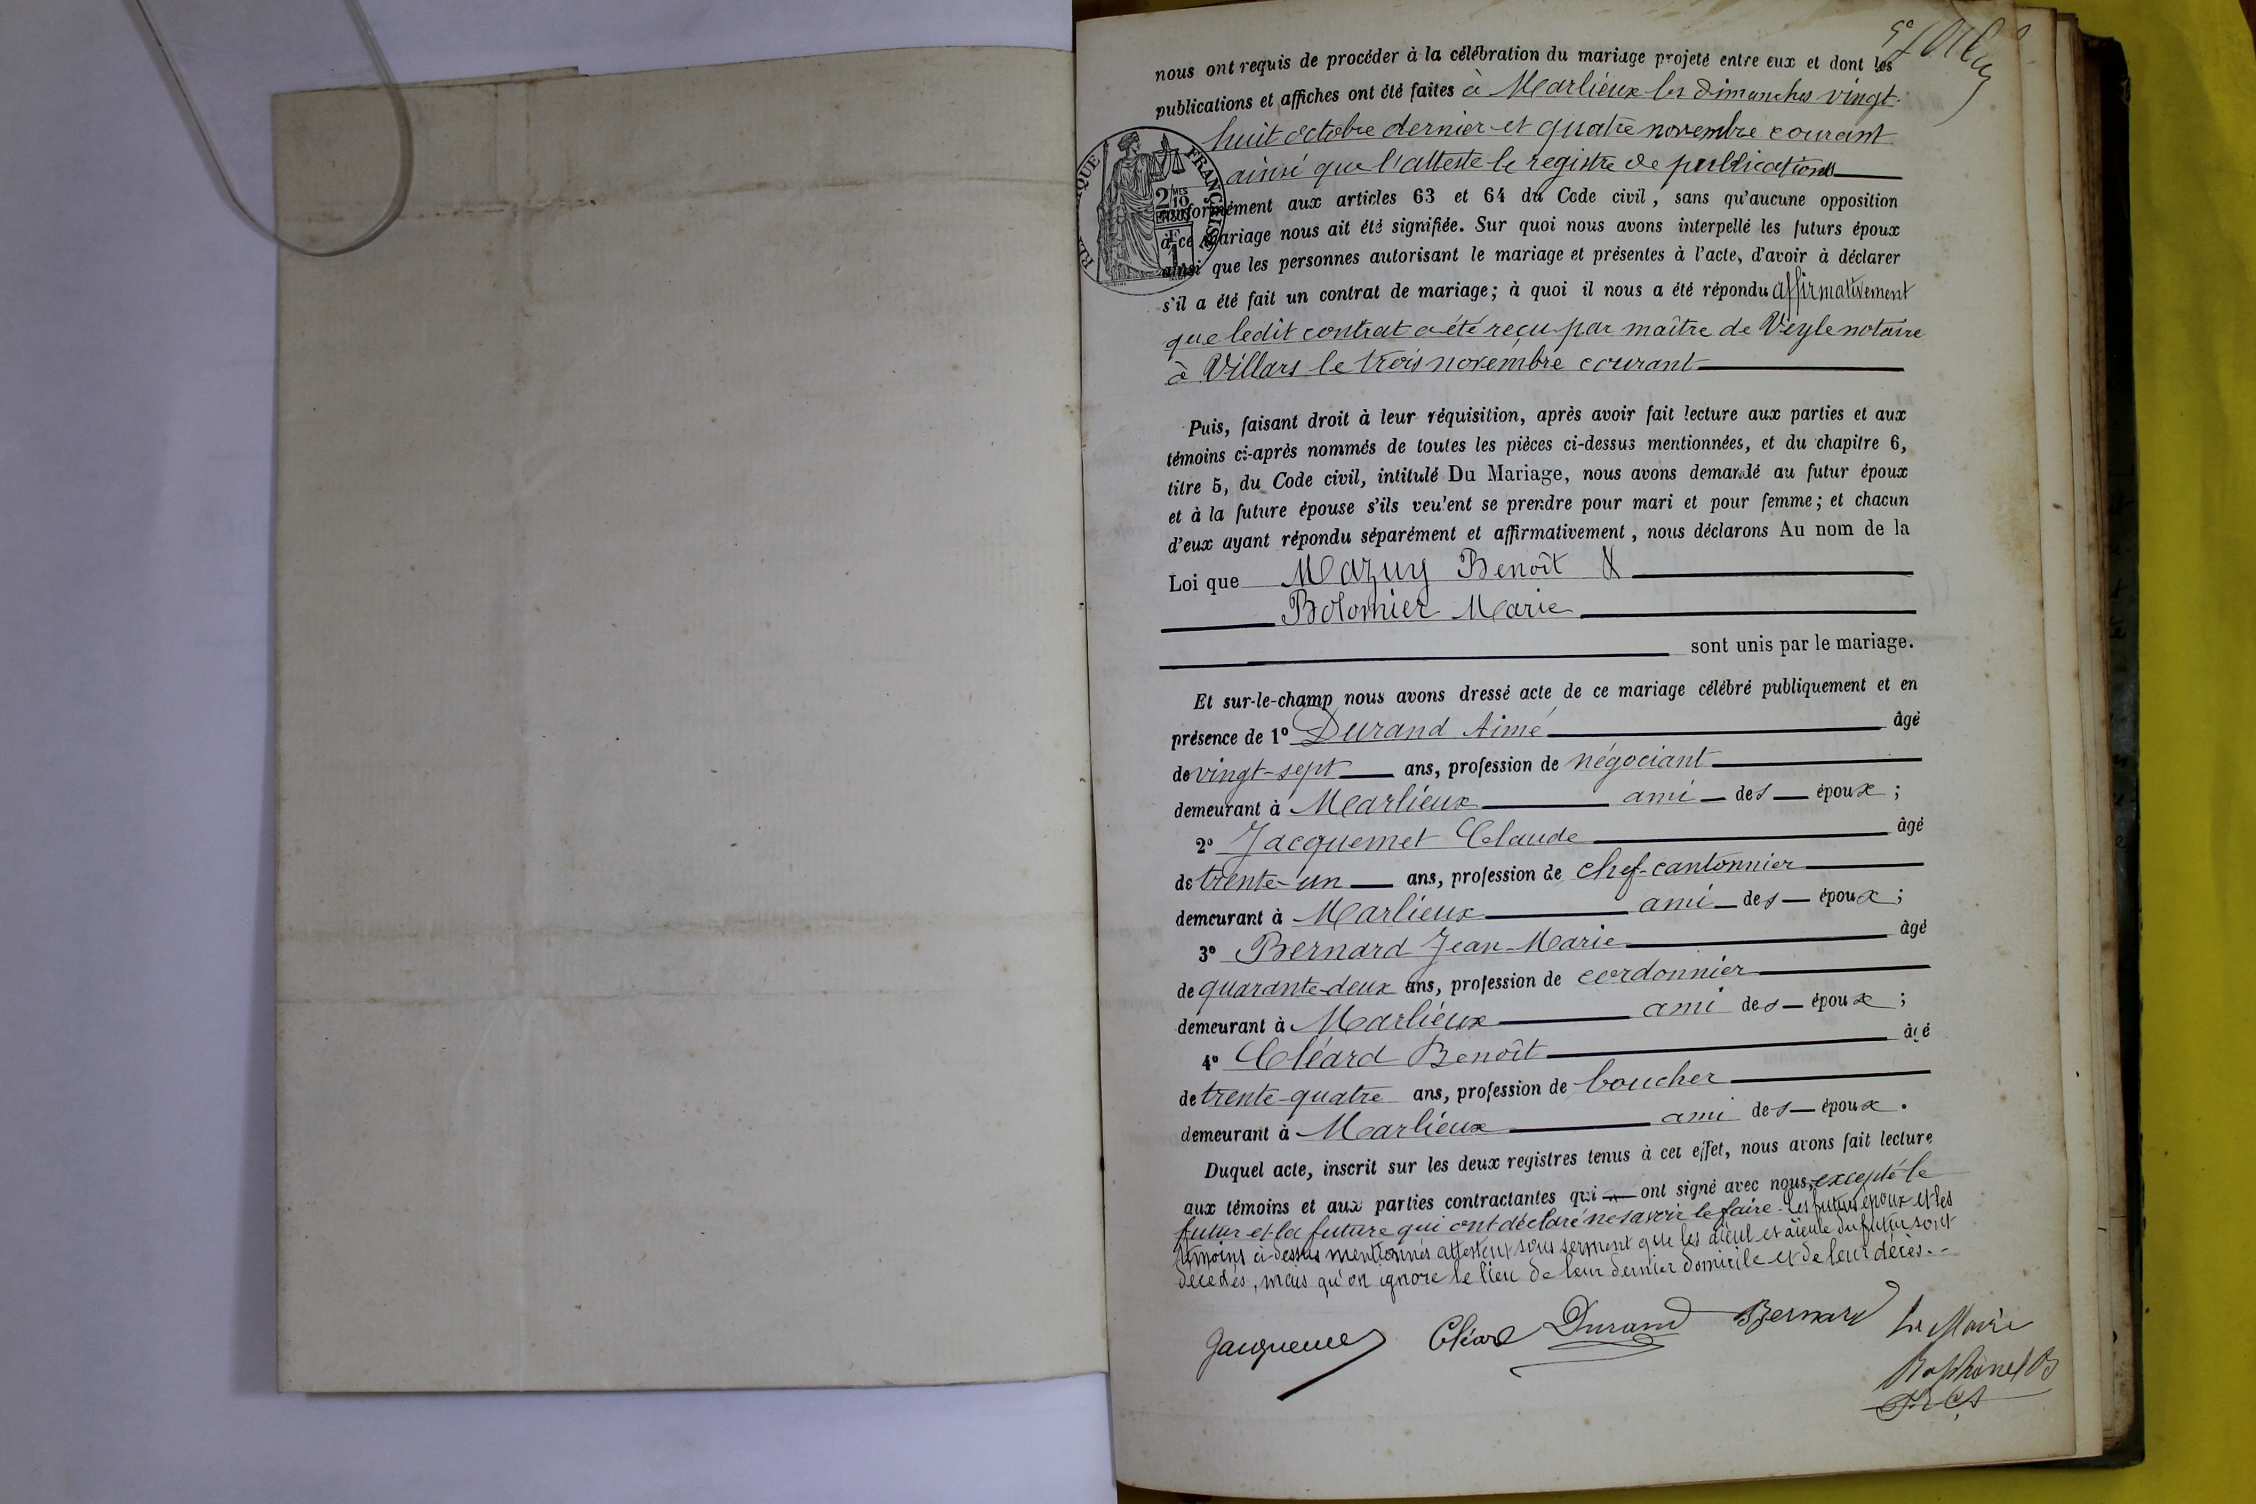 nous ont requis de procéder à la célébration du mariage projeté entre eux et dont les
publications et affiches ont été faites à Marlieux les dimanches vingt-
huit octobre dernier et quatre novembre courant
ainsi que l'atteste le registre de publications
conformément aux articles 63 et 64 du Code civil, sans qu'aucune opposition
à ce mariage nous ait été signifiée. Sur quoi nous avons interpellé les futurs époux
ainsi que les personnes autorisant le mariage et présentes à l'acte, d'avoir à déclarer
s'il a été fait un contrat de mariage; à quoi il nous a été répondu affirmativement
que ledit contrat a été reçu par maître de Veyle notaire
à Villars le trois novembre courant
Puis, faisant droit à leur réquisition, après avoir fait lecture aux parties et aux
témoins ci-après nommés de toutes les pièces ci-dessus mentionnées, et du chapitre 6,
titre 5, du Code civil, intitulé Du Mariage, nous avons demandé au futur époux
et à la future épouse s'ils veulent se prendre pour mari et pour femme; et chacun
d'eux ayant répondu séparément et affirmativement, nous déclarons Au nom de la
Loi que Mazuy Benoît &
Bolomier Marie
sont unis par le mariage.
Et sur-le-champ nous avons dressé acte de ce mariage célébré publiquement et en
présence de 1° Durand Aimé âgé
de vingt-sept ans, profession de négociant
demeurant à Marlieux ami des époux ;
2° Jacquemet Claude âgé
de trente-un ans, profession de chef-cantonnier
demeurant à Marlieux ami des époux ;
3° Bernard Jean-Marie âgé
de quarante-deux ans, profession de cordonnier
demeurant à Marlieux ami des époux ;
4° Cléard Benoît âgé
de trente-quatre ans, profession de boucher
demeurant à Marlieux ami des époux.
Duquel acte, inscrit sur les deux registres tenus à cet effet, nous avons fait lecture
aux témoins et aux parties contractantes qui ont signé avec nous, excepté le
futur et la future qui ont déclaré ne savoir le faire. Les futurs époux et les
témoins ci-dessus mentionnés attestent sous serment que les aïeul et aïeule du futur sont
décédés, mais qu'on ignore le lieu de leur dernier domicile et de leur décès.
Jacquemet Cléard Durand Bernard Le Maire